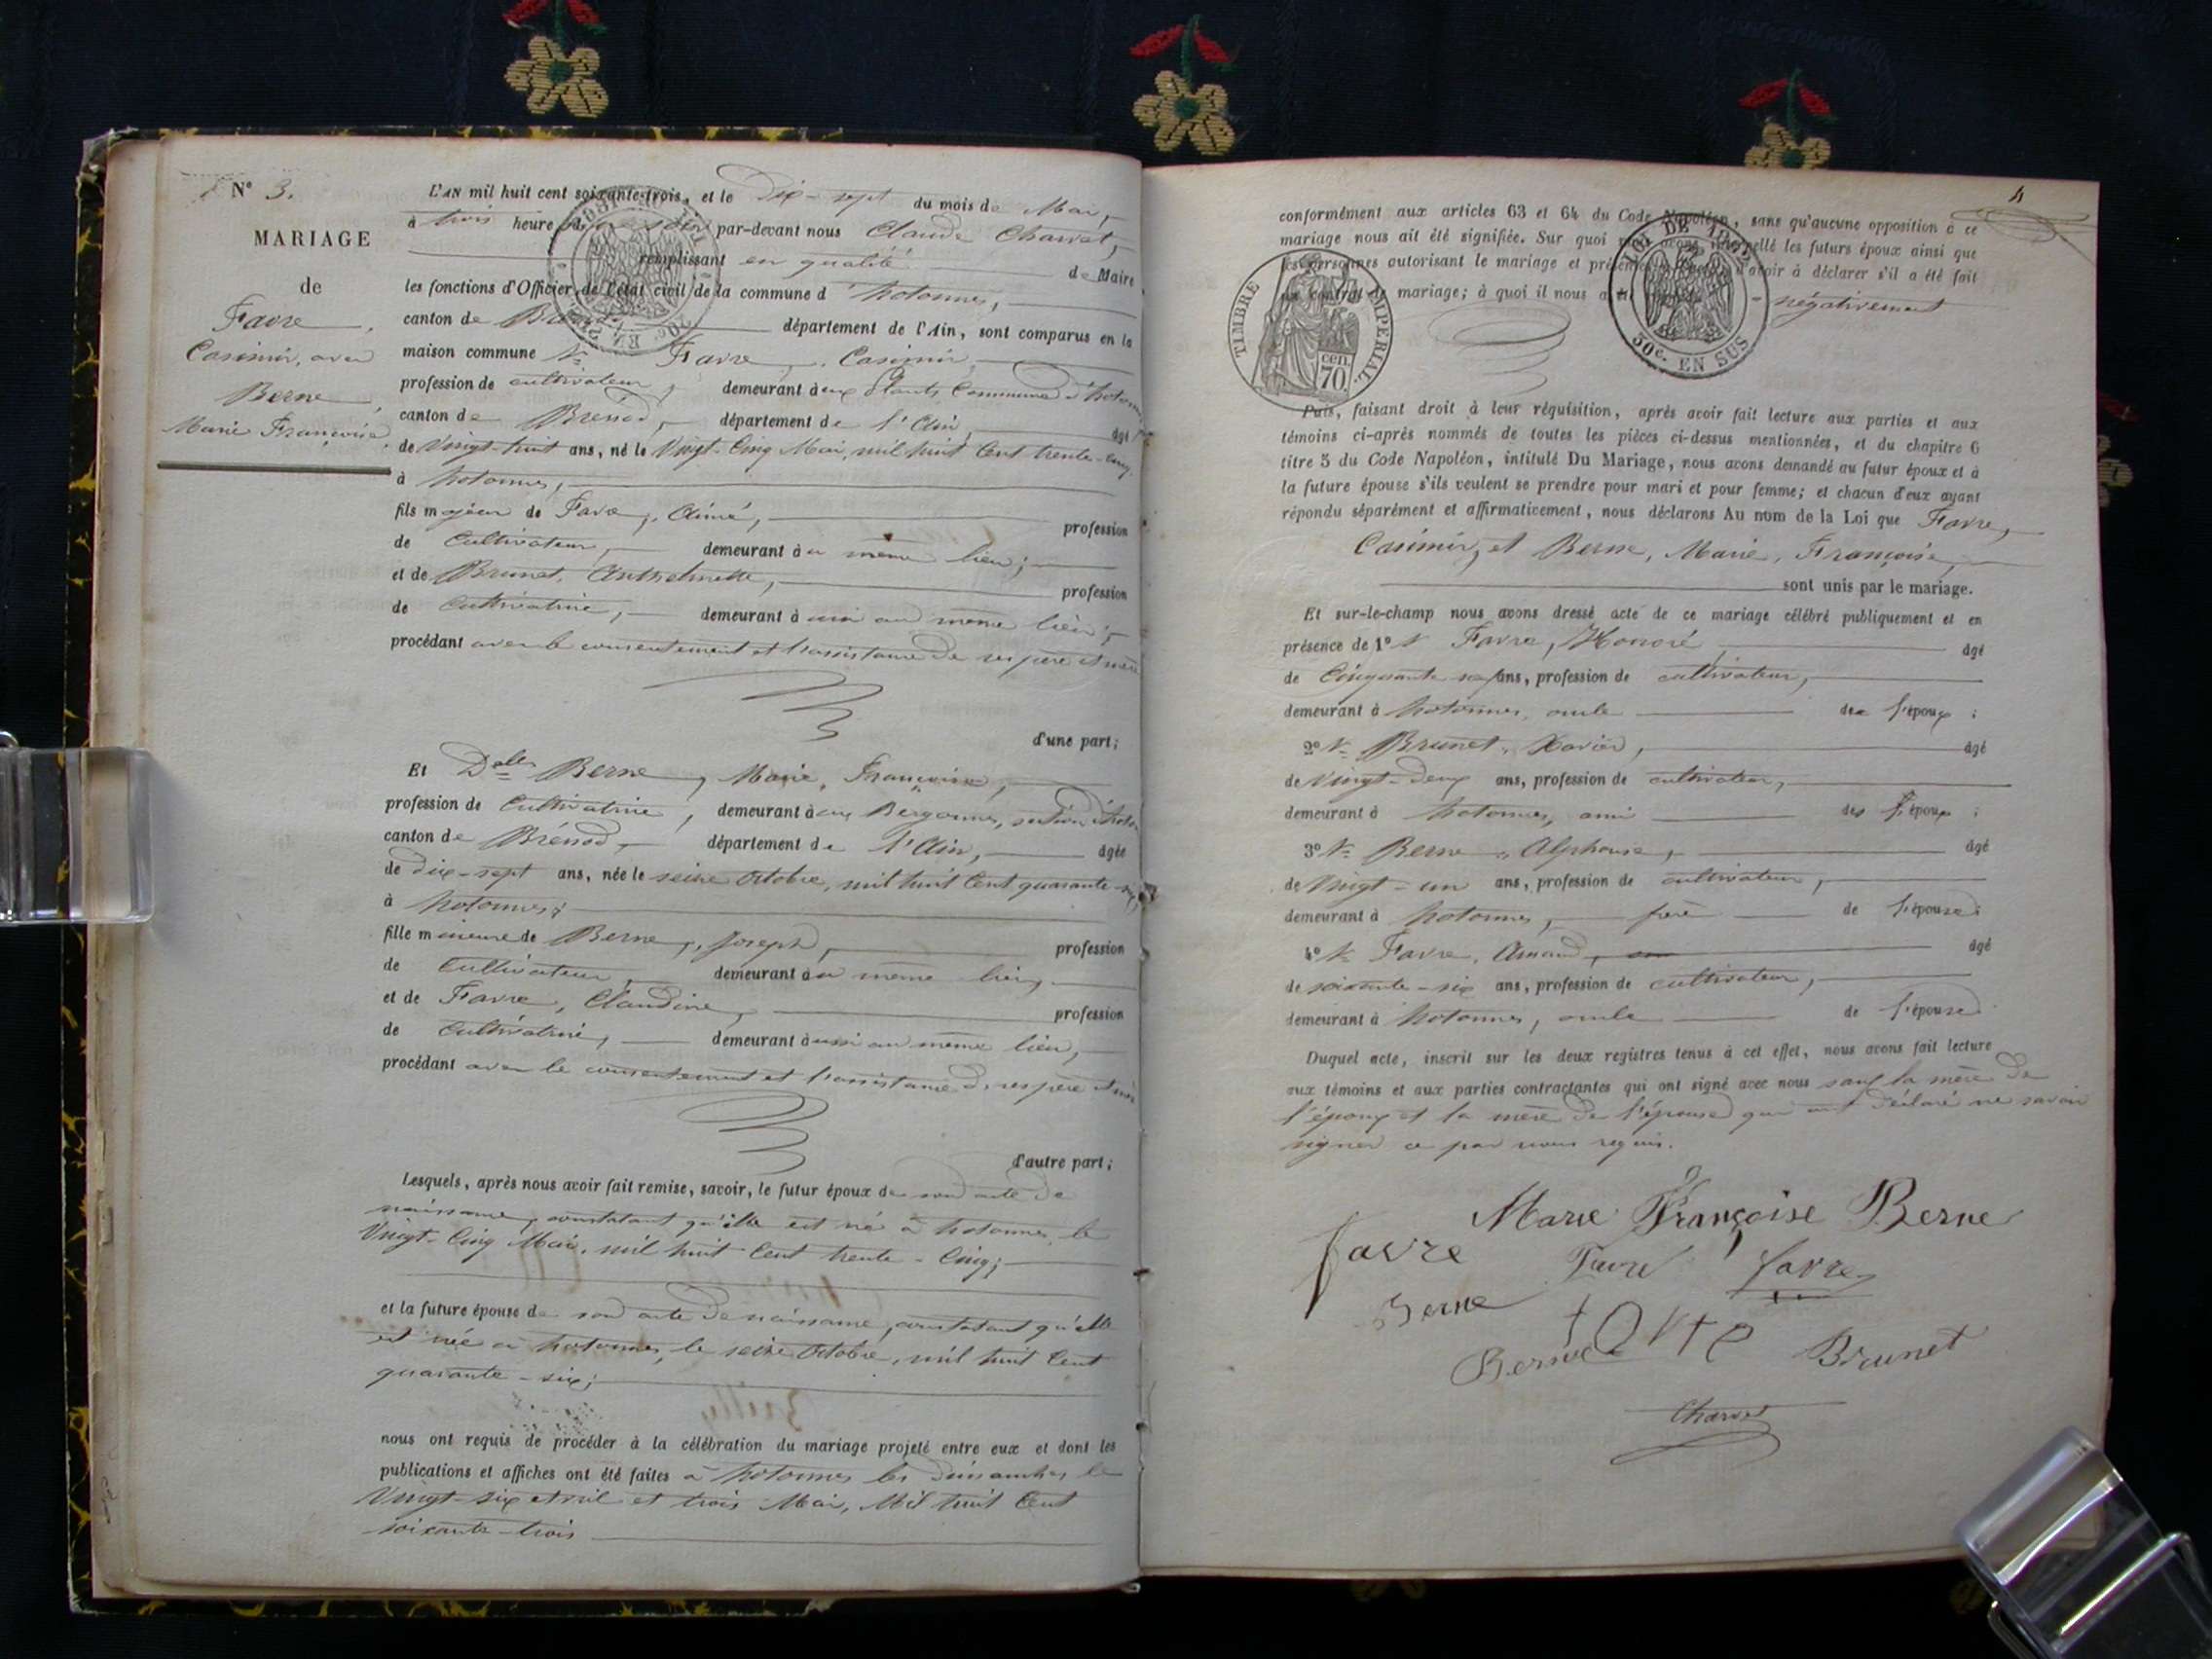 N° 3.
MARIAGE
de
Favre
Casimir, avec
Berne
Marie Françoise
L'AN mil huit cent soixante-trois, et le Dix-sept du mois de Mai,
à trois heures du soir par-devant nous Claude Charvet,
remplissant en qualité de Maire
les fonctions d'Officier de l'état civil de la commune d'hotonnes,
canton de Brénod département de l'Ain, sont comparus en la
maison commune Sr Favre, Casimir,
profession de cultivateur, demeurant aux Plants, Commune d'hotonnes
canton de Brénod, département de l'Ain, âgé
de Vingt-huit ans, né le Vingt-Cinq Mai, mil huit Cent trente-cinq,
à hotonnes,
fils majeur de Favre, Aimé, profession
de Cultivateur, demeurant au même lieu;
et de Brunet, Anthelmette, profession
de Cultivatrice, demeurant aussi au même lieu;
procédant avec le consentement et l'assistance de ses père et mère
d'une part;
Et Dlle Berne, Marie, Françoise,
profession de Cultivatrice, demeurant aux Bergonnes, section d'hotonnes
canton de Brénod, département de l'Ain, âgée
de dix-sept ans, née le seize Octobre, mil huit Cent quarante-six,
à hotonnes;
fille mineure de Berne, Joseph, profession
de Cultivateur, demeurant au même lieu,
et de Favre, Claudine, profession
de Cultivatrice, demeurant aussi au même lieu,
procédant avec le consentement et l'assistance de ses père et mère
d'autre part;
Lesquels, après nous avoir fait remise, savoir, le futur époux de son acte de
naissance, constatant qu'elle est né à hotonnes, le
Vingt-Cinq Mai, mil huit Cent trente-Cinq;
et la future épouse de son acte de naissance, constatant qu'elle
est née à hotonnes, le seize Octobre, mil huit Cent
quarante-six;
nous ont requis de procéder à la célébration du mariage projeté entre eux et dont les
publications et affiches ont été faites à hotonnes les dimanches le
Vingt-six Avril et trois Mai, Mil huit Cent
soixante-trois
4
conformément aux articles 63 et 64 du Code Napoléon, sans qu'aucune opposition à ce
mariage nous ait été signifiée. Sur quoi nous avons interpellé les futurs époux ainsi que
les personnes autorisant le mariage et présentes à l'acte d'avoir à déclarer s'il a été fait
un contrat de mariage; à quoi il nous a été négativement
TIMBRE IMPÉRIAL.
70 cen.
LOI DE
50c. EN SUS
Puis, faisant droit à leur réquisition, après avoir fait lecture aux parties et aux
témoins ci-après nommés de toutes les pièces ci-dessus mentionnées, et du chapitre 6
titre 5 du Code Napoléon, intitulé Du Mariage, nous avons demandé au futur époux et à
la future épouse s'ils veulent se prendre pour mari et pour femme; et chacun d'eux ayant
répondu séparément et affirmativement, nous déclarons Au nom de la Loi que Favre,
Casimir, et Berne, Marie, Françoise,
sont unis par le mariage.
Et sur-le-champ nous avons dressé acte de ce mariage célébré publiquement et en
présence de 1° Sr Favre, Honoré, âgé
de Cinquante ans, profession de cultivateur,
demeurant à hotonnes, oncle de l'époux;
2° Sr Brunet, Xavier, âgé
de Vingt-deux ans, profession de cultivateur,
demeurant à hotonnes, ami des époux;
3° Sr Berne, Alphonse, âgé
de Vingt-un ans, profession de cultivateur,
demeurant à hotonnes, frère de l'épouse;
4° Sr Favre, Amand, âgé
de soixante-six ans, profession de cultivateur,
demeurant à hotonnes, oncle de l'épouse
Duquel acte, inscrit sur les deux registres tenus à cet effet, nous avons fait lecture
aux témoins et aux parties contractantes qui ont signé avec nous sauf la mère de
l'époux et la mère de l'épouse qui ont déclaré ne savoir
signer ce par nous requis.
Marie Françoise Berne
favre Favre favre
Berne favre
Berne Brunet
Charvet